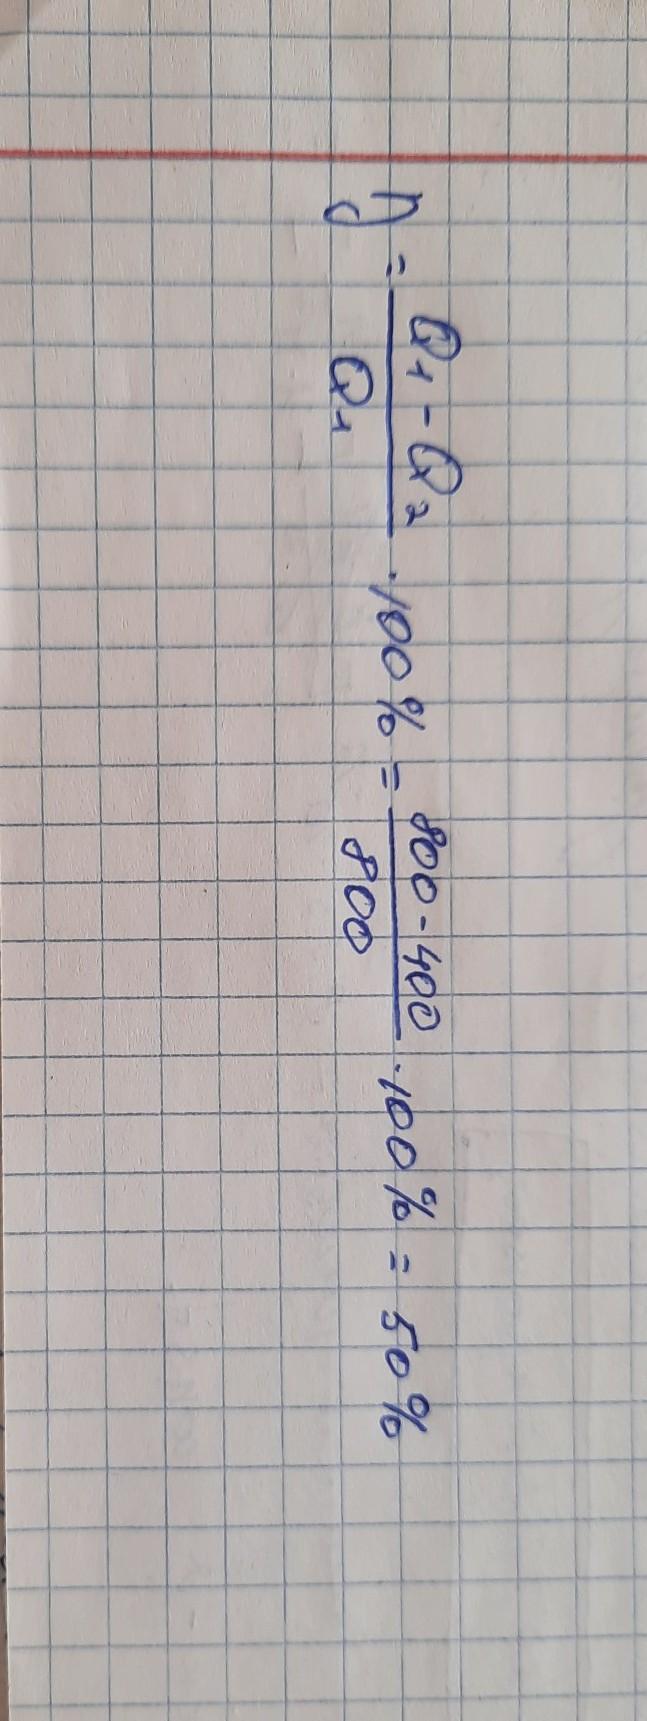 η = (Q₁ - Q₂) / Q₁ · 100% = (800 - 400) / 800 · 100% = 50%